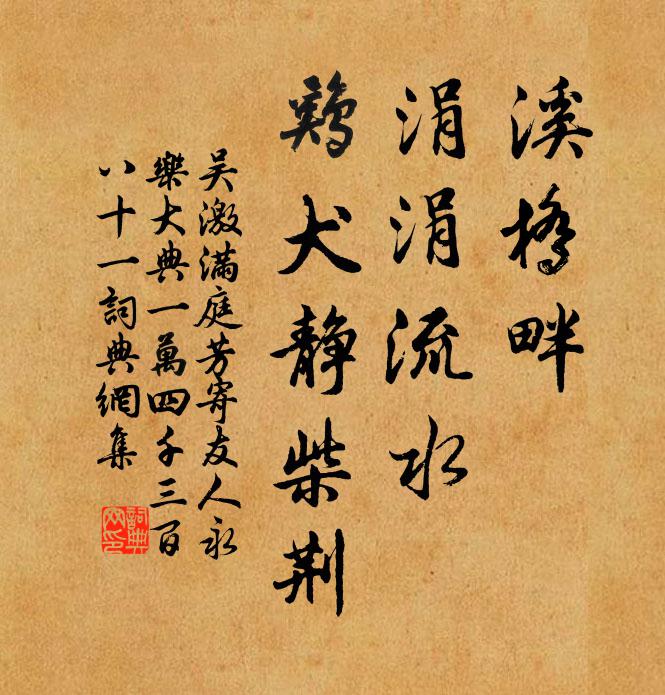 溪橋畔
涓涓流水
鷄犬静柴荆
吴激滿庭芳寄友人永
樂大典一萬四千三百
八十一詞典網集
詞典網印